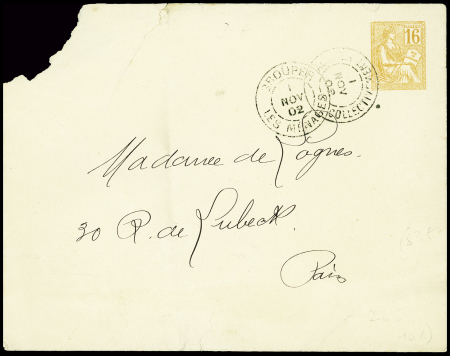 16
GROUPEE
1
NOV
02
LES MENAGES
1
NOV
02
COLLECTIVEM
Madame de Cognes.
30 R. de Lubeck
Paris